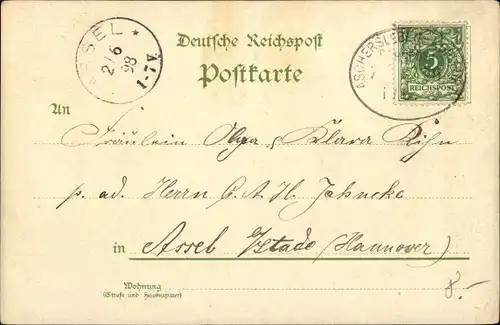 ASSEL *
2/6
98
1-7 V.
Deutsche Reichspost
Postkarte
ASCHERSLE
5
REICHSPOST
An
Fräulein Olga & Klara Rihn
p. ad. Herrn C. A. H. Jahncke
in Assel b/Stade (Hannover)
Wohnung
(Straße und Hausnummer)
8.-